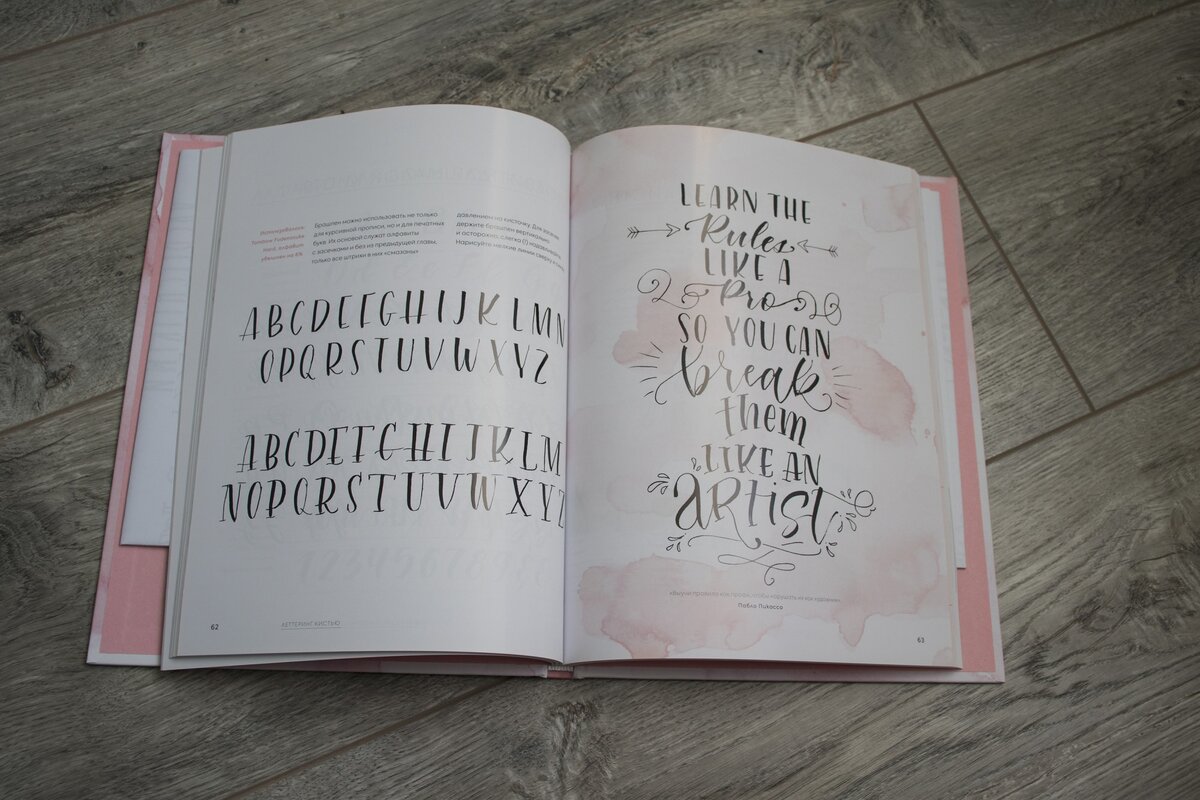 Брашпен можно использовать не только
для курсивной прописи, но и для печатных
букв. Их основой служат алфавиты
с засечками и без из предыдущей главы,
только все штрихи в них «смазаны»
давлением на кисточку. Для
держите брашпен вертикально
и осторожно, слегка (!)
Нарисуйте мелкие линии сверху
ABCDEFGHIJKLMN
OPQRSTUVWXYZ
ABCDEFGHIJKLM
NOPQRSTUVWXYZ
62
ЛЕТТЕРИНГ КИСТЬЮ
LEARN THE
Rules
LIKE A
Pro
SO YOU CAN
break
them
LIKE AN
ARTIST
«Выучи правила как профи, чтобы нарушать их как художник».
Пабло Пикассо
63